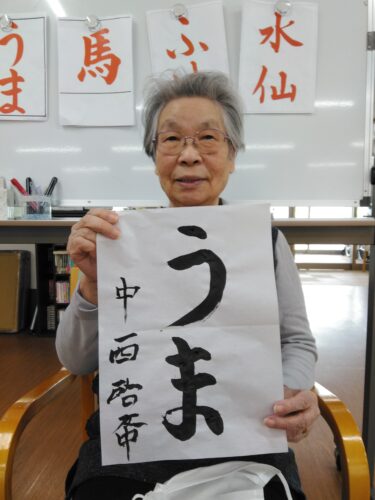 うま
馬
ふ
水仙
うま
中西啓